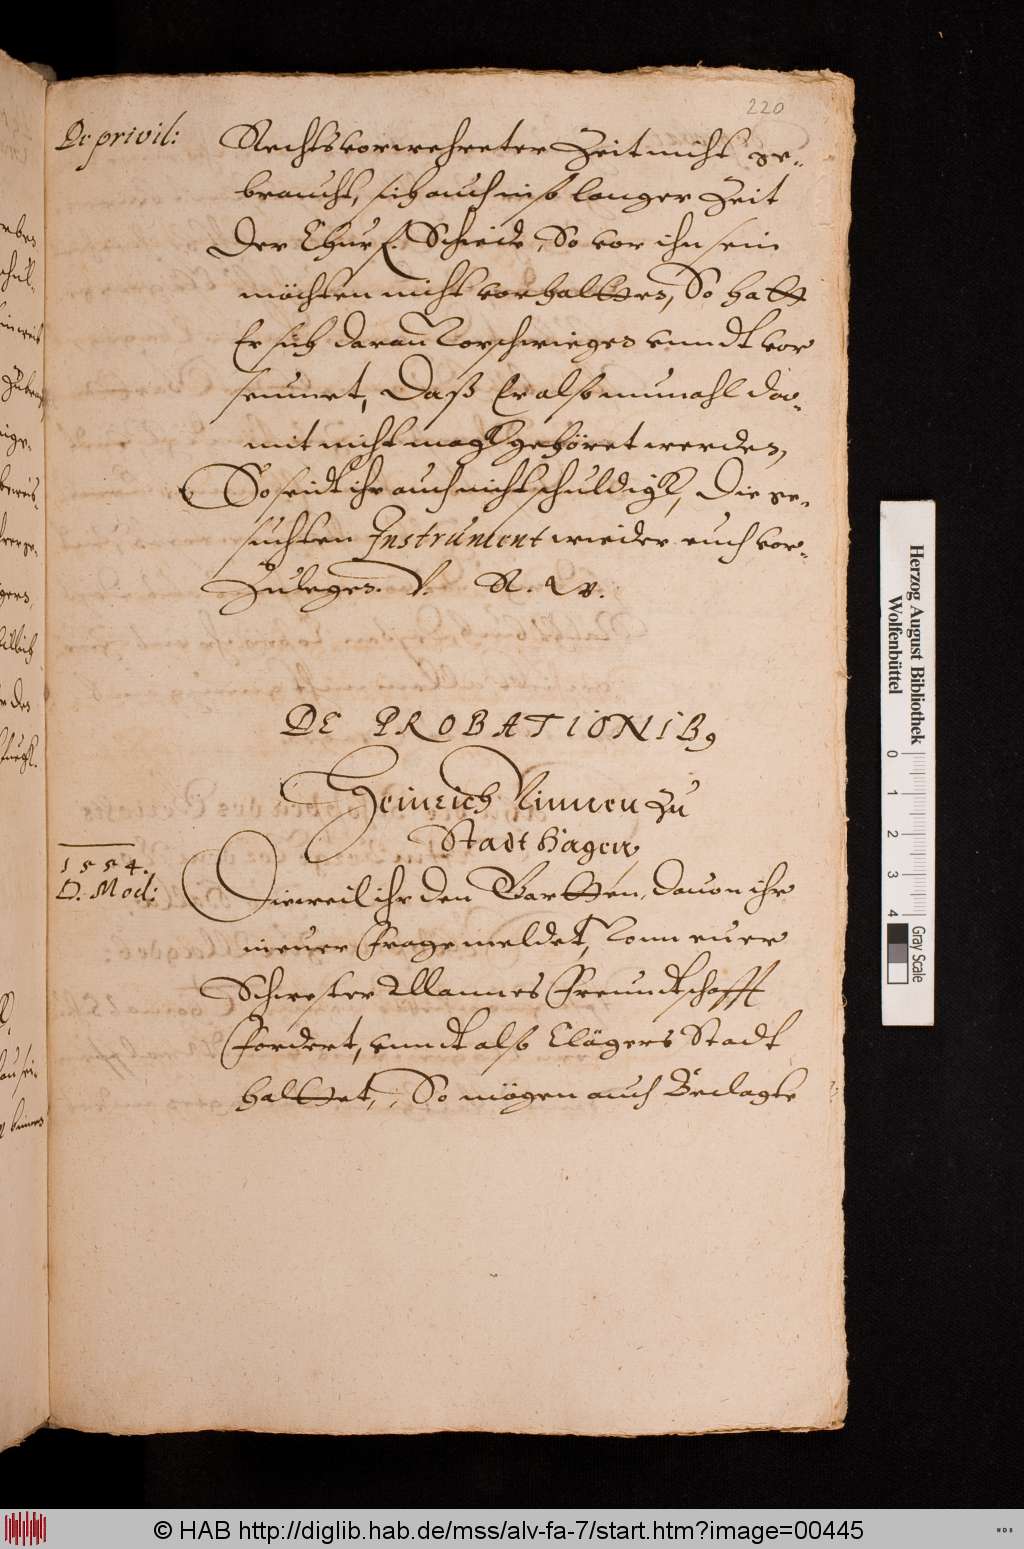 220
De privil:
Rechtsvorwehreter Zeit nicht ge-
braucht, sich auch insb langer Zeit
Der Churf. Scheide, So vor ihn sein
möchten nicht vorhaltten, So hatt
Er sich daran Vorschwiegen vnndt vor
seumet, Daß Er also nunmahl da-
mit nicht magk gehöret werden,
So seidt ihr auch nicht schuldigk, Die ge-
suchten Instrument wieder euch vor-
Zulegen. V. R. W.
DE PROBATIONIB9
Heinrich Vinnen zu
Stadthagen
1554.
D. Mod:
Dieweil ihr den Gartten, dauon ihr
inn euer Frage meldet, Vonn euer
Schwester Mannes Freundtschafft
Fordert, vnndt also Clägers Stadt
haltet, So mögen auch Beclagte
Herzog August Bibliothek
Wolfenbüttel
0 1 2 3 4
Gray Scale
© HAB http://diglib.hab.de/mss/alv-fa-7/start.htm?image=00445